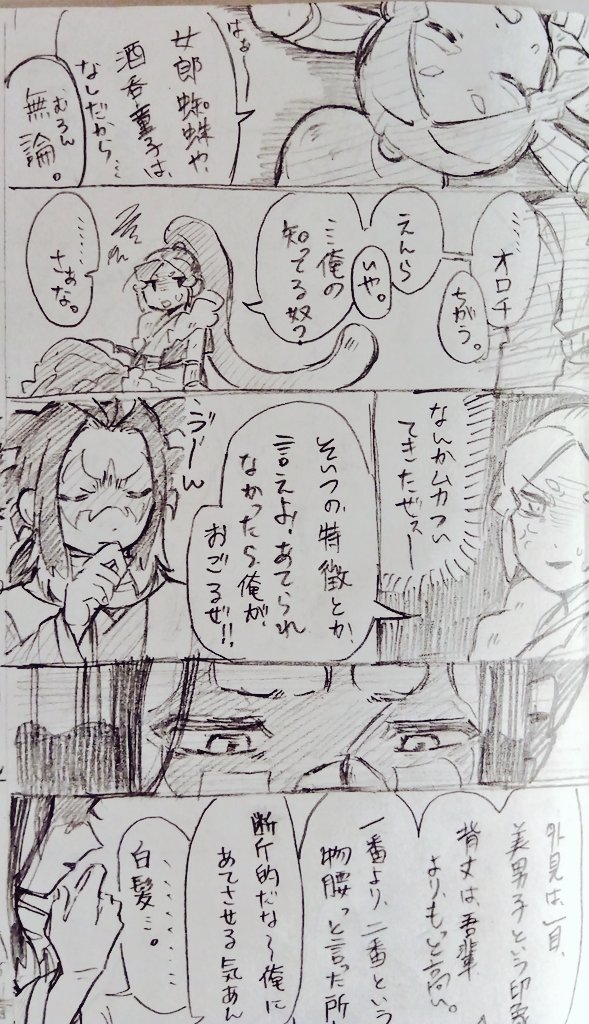 はぁ〜
女郎蜘蛛や、
酒呑童子は、
なしだから…
むろん
無論。
オロチ
ちがう。
えんら
いや。
…俺の
知ってる奴?
……
さぁな。
なんかムカつい
てきたぜェー
そいつの特徴とか、
言えよ!あてられ
なかったら俺が
おごるぜ!!
う〜ん
外見は、一見、
美男子という印象
背丈は、吾輩
より、もっと高い。
一番より、二番という
物腰っと言った所
断片的だな〜俺に
あてさせる気あん
………
白髪…。